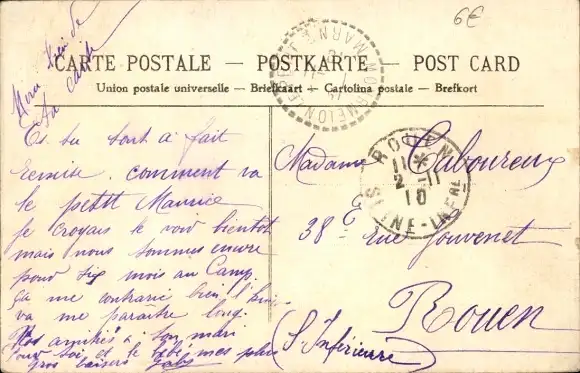 6€
Merci bien de
ta carte
CARTE POSTALE — POSTKARTE — POST CARD
Union postale universelle — Briefkaart — Cartolina postale — Brefkort
MOURMELON MARNE
ROUEN
11 *
2 -11
10
SEINE-INFRE
Es tu tout à fait
remise. comment va
le petit Maurice
Je croyais le voir bientôt
mais nous sommes encore
pour six mois au Camp.
ça me contrarie bien, l'hiver
va me paraitre long.
Mes amitiés à ton mari
Pour toi et le bébé mes plus
gros baisers
Madame Caboureux
38E rue Jouvenet
Rouen
(S. Inférieure)